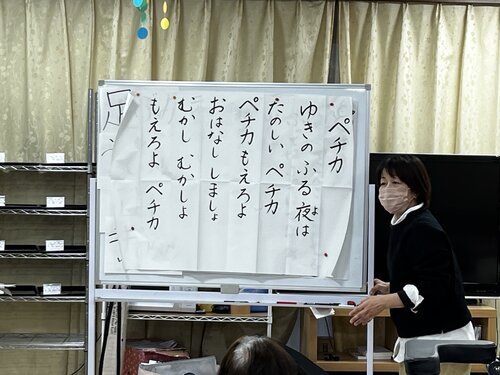 ペチカ
ゆきの ふる 夜は
よ
たのしい ペチカ
ペチカ もえろよ
おはなし しましょ
むかし むかしよ
もえろよ ペチカ